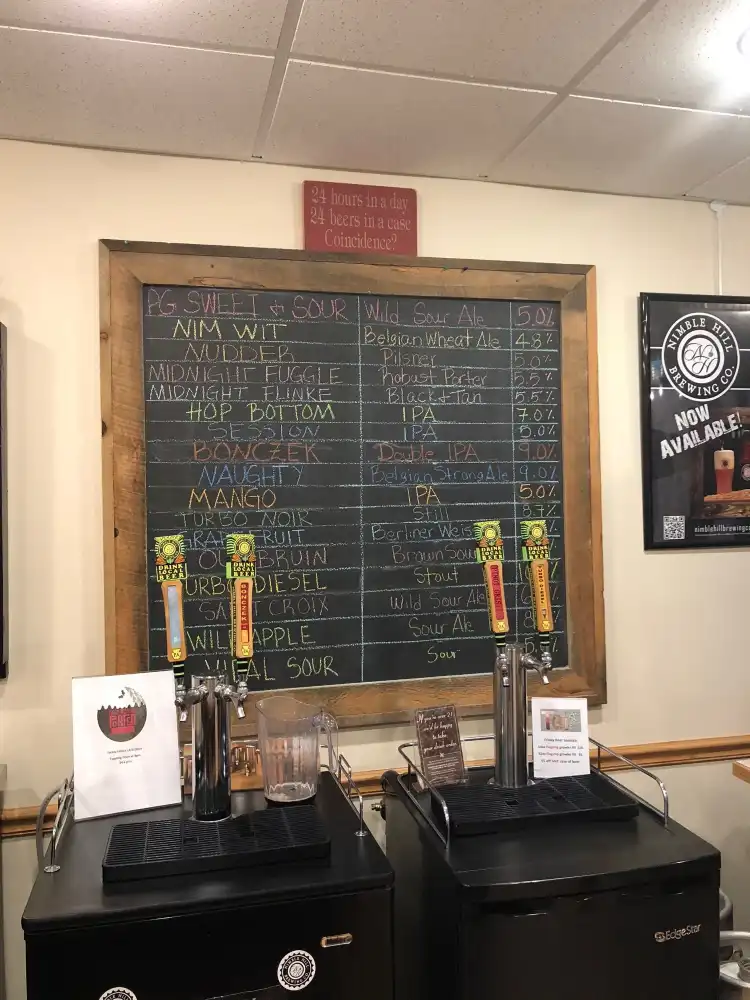 24 hours in a day
24 beers in a case
Coincidence?
PG SWEET & SOUR Wild Sour Ale 5.0%
NIM WIT Belgian Wheat Ale 4.8%
NUDDER Pilsner 5.0%
MIDNIGHT FUGGLE Robust Porter 5.5%
MIDNIGHT FLINKE Black & Tan 5.5%
HOP BOTTOM IPA 7.0%
SESSION IPA 5.0%
BONCZEK Double IPA 9.0%
NAUGHTY Belgian Strong Ale 9.0%
MANGO IPA 5.0%
TURBO NOIR Still 8.7%
Berliner Weis
BRUIN Brown Sour
DIESEL Stout
CROIX Wild Sour Ale
APPLE Sour Ale
SOUR Sour
DRINK
LOCAL
BEER
DRINK
LOCAL
BEER
BONCZEK
DRINK
LOCAL
BEER
DRINK
LOCAL
BEER
NIMBLE HILL
NH
BREWING CO.
NOW
AVAILABLE!
EdgeStar